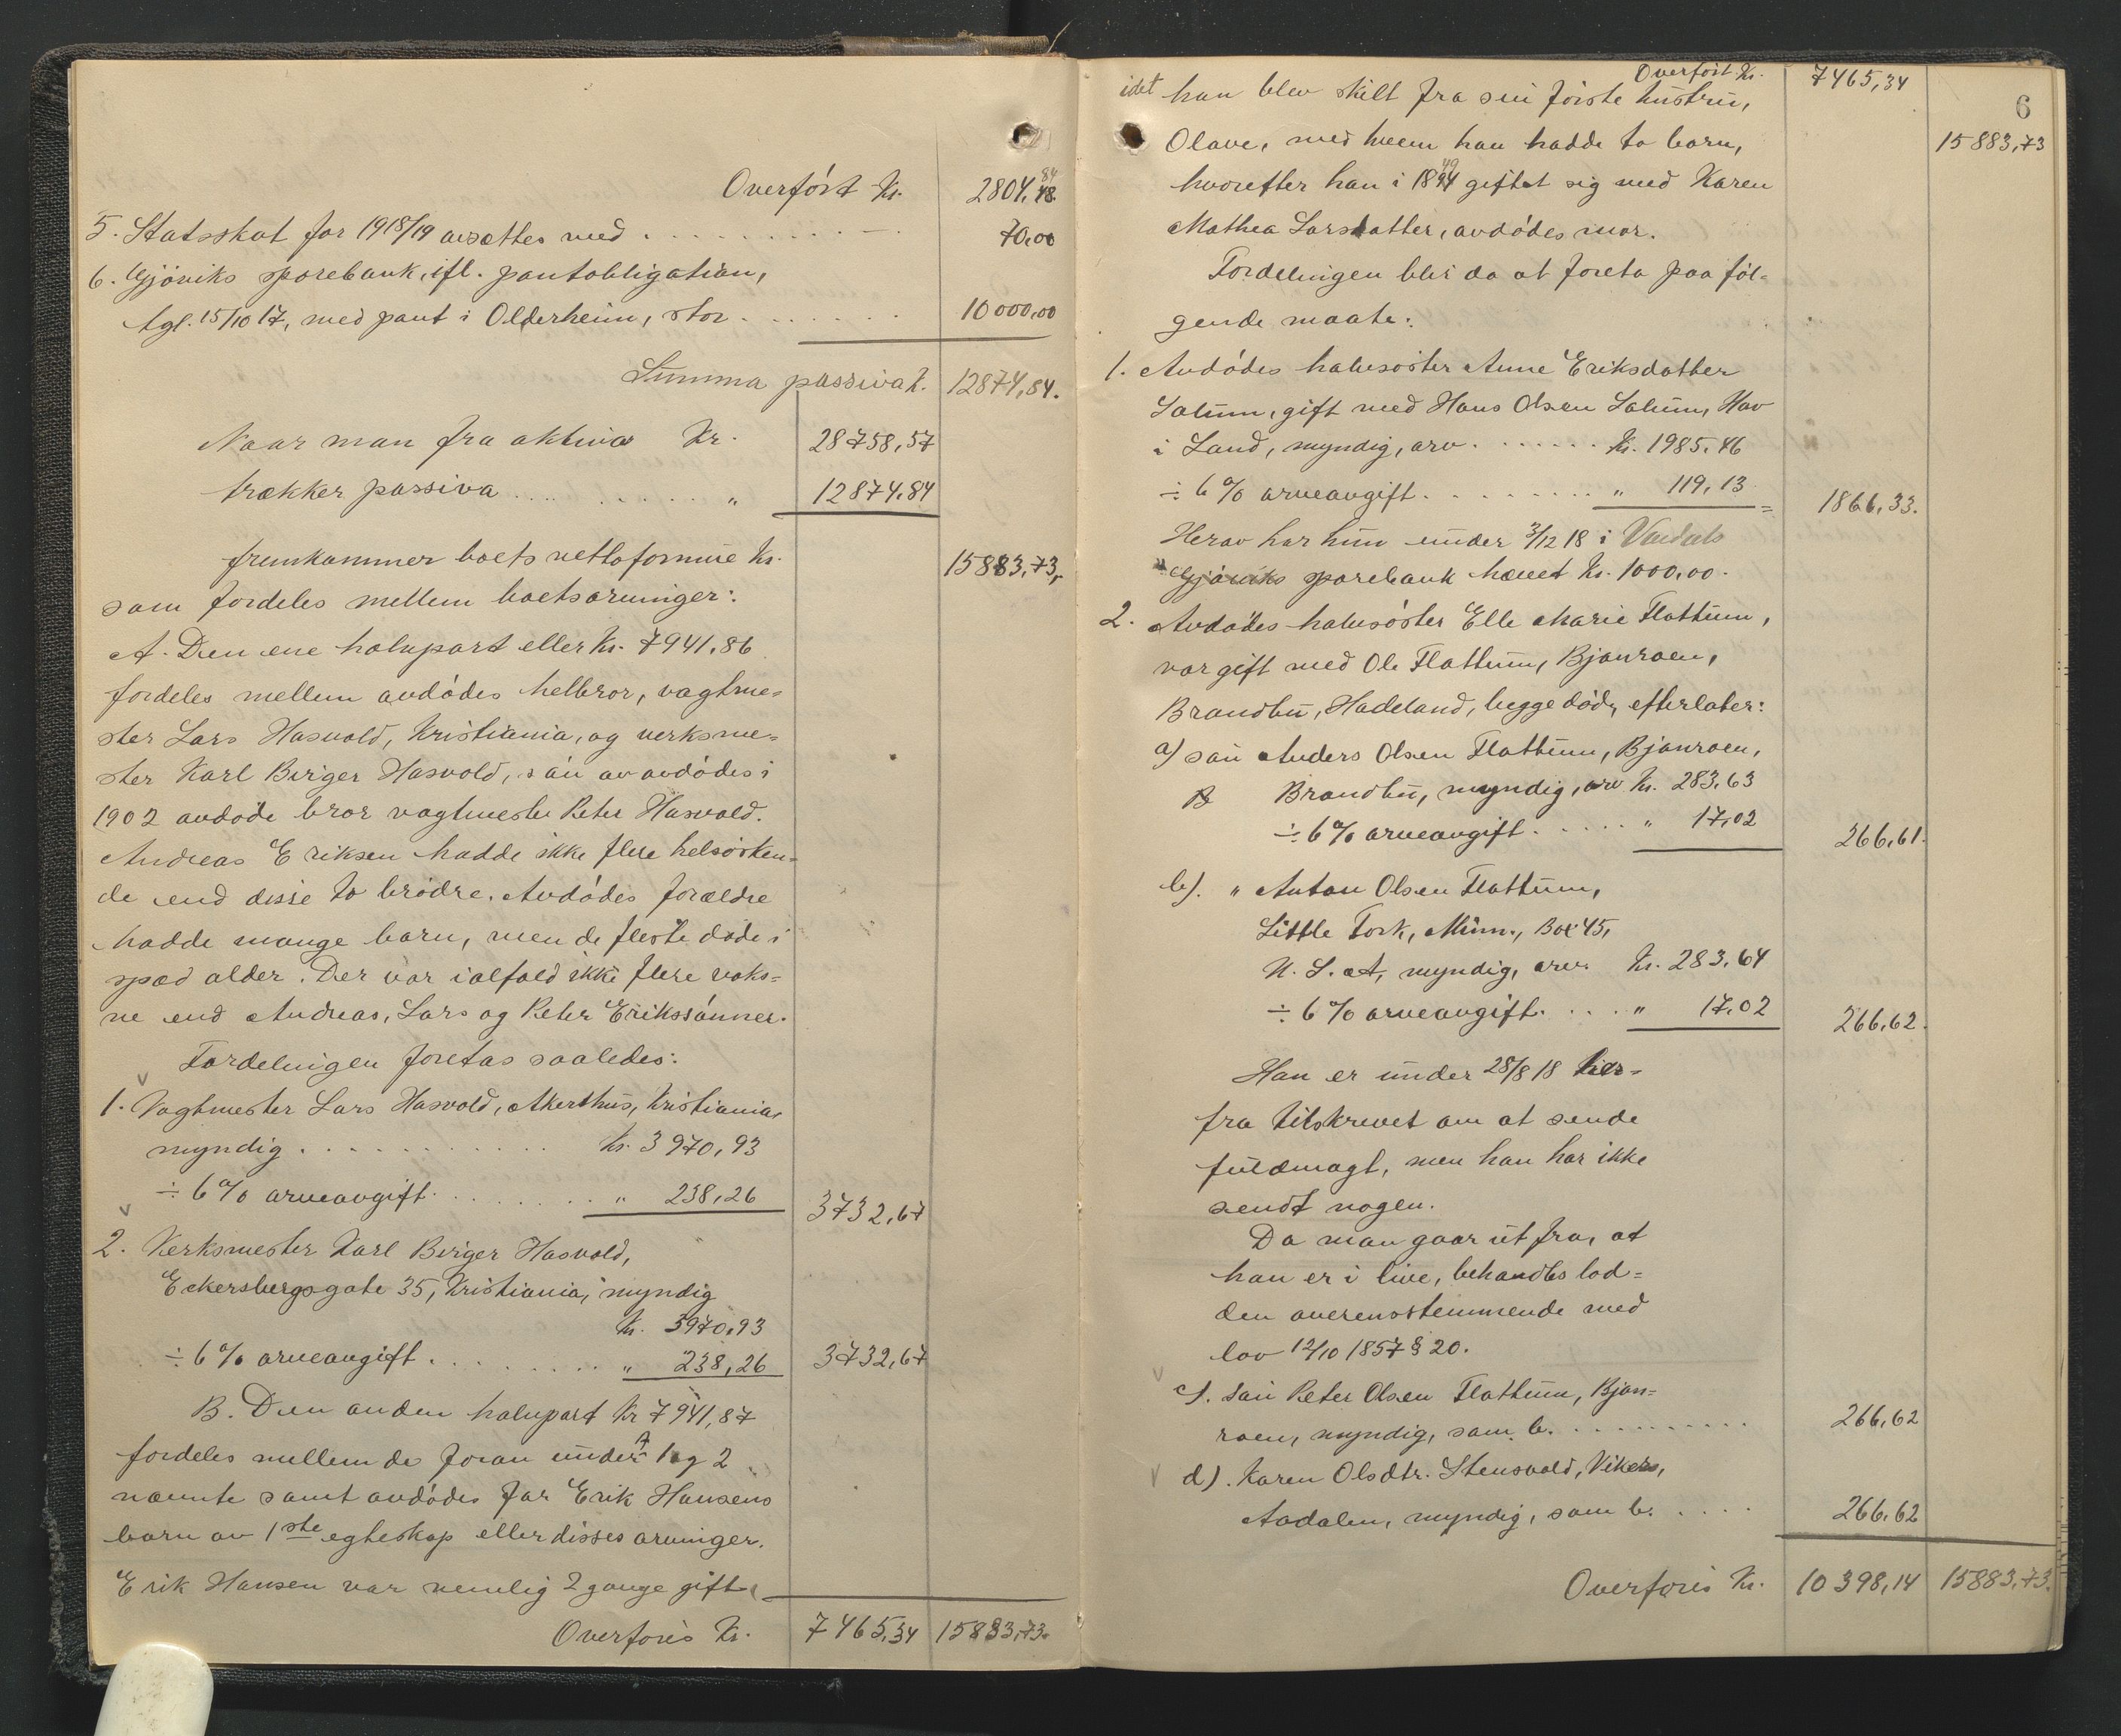 Overført Kr. 2804,48. 84
5. Statsskat for 1918/19 avsættes med . . . . . 70,00
6. Gjøviks sparebank, ifl. pantobligation,
tgl. 15/10 17, med pant i Olderheim, stor . . . . . 10 000,00
Summa passiva k. 12874,84.
Naar man fra aktiva Kr. 28758,57
trækker passiva . . . . . „ 12874,84
fremkommer boets nettoformue Kr. 15883,73,
som fordeles mellem boets arvinger:
A. Den ene halvpart eller kr. 7941,86
fordeles mellem avdødes helbror, vagtme-
ster Lars Hasvold, Kristiania, og verksme-
ster Karl Birger Hasvold, søn av avdødes i
1902 avdøde bror vagtmester Peter Hasvold.
Andreas Eriksen hadde ikke flere helsøsken-
de end disse to brødre. Avdødes forældre
hadde mange barn, men de fleste døde i
spæd alder. Der var ialfald ikke flere voks-
ne end Andreas, Lars og Peter Erikssønner.
Fordelingen foretas saaledes:
1. Vagtmester Lars Hasvold, Akershus, Kristiania,
myndig . . . . . kr. 3970,93
÷ 6 % arveavgift . . . . . „ 238,26 3732,67
2. Verksmester Karl Birger Hasvold,
Eckersbergsgate 35, Kristiania, myndig
Kr. 3970,93
÷ 6 % arveavgift . . . . . „ 238,26 3732,67
B. Den anden halvpart Kr 7941,87
fordeles mellem de foran under A 1 og 2
nævnte samt avdødes far Erik Hansens
barn av 1ste egteskap eller disses arvinger.
Erik Hansen var nemlig 2 gange gift,
Overføres Kr. 7465,34 15883,73.
6
Overført Kr. 7465,34
idet han blev skilt fra sin første hustru,
Olave, med hvem han hadde to barn, 15883,73
hvorefter han i 1894 49 giftet sig med Karen
Mathea Larsdatter, avdødes mor.
Fordelingen blir da at foreta paa føl-
gende maate:
1. Avdødes halvsøster Anne Eriksdatter
Salum, gift med Hans Olsen Salum, Hov
i Land, myndig, arv . . . . . Kr. 1985,46
÷ 6 % arveavgift . . . . . „ 119,13 = 1866,33.
Herav har hun under 3/12 18 i Vardals
Gjøviks sparebank hævet Kr. 1000,00.
2. Avdødes halvsøster Elle Marie Flattum,
var gift med Ole Flattum, Bjonroen,
Brandbu, Hadeland, begge døde, efterlater:
a) søn Anders Olsen Flattum, Bjonroen,
B Brandbu, myndig, arv Kr. 283,63
÷ 6 % arveavgift . . . . . „ 17,02 266,61.
b). „ Anton Olsen Flattum,
Little Fork, Minn., Box 45,
U. S. A, myndig, arv. Kr. 283,64
÷ 6 % arveavgift . . . . „ 17,02 266,62.
Han er under 28/8 18 her-
fra tilskrevet om at sende
fuldmagt, men han har ikke
sendt nogen.
Da man gaar ut fra, at
han er i live, behandles lod-
den overensstemmende med
lov 12/10 1857 § 20.
c). søn Peter Olsen Flattum, Bjon-
roen, myndig, som b. . . . . . 266,62
d). Karen Olsdtr. Stensvold, Viker,
Aadalen, myndig, som b. . . . 266,62
Overføres Kr. 10398,14 15883,73.